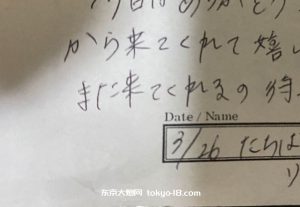 今日はありがとう
から来てくれて嬉し
また来てくれるの待
Date / Name
3/26 たちは
り
东京大翅网 tokyo-18.com